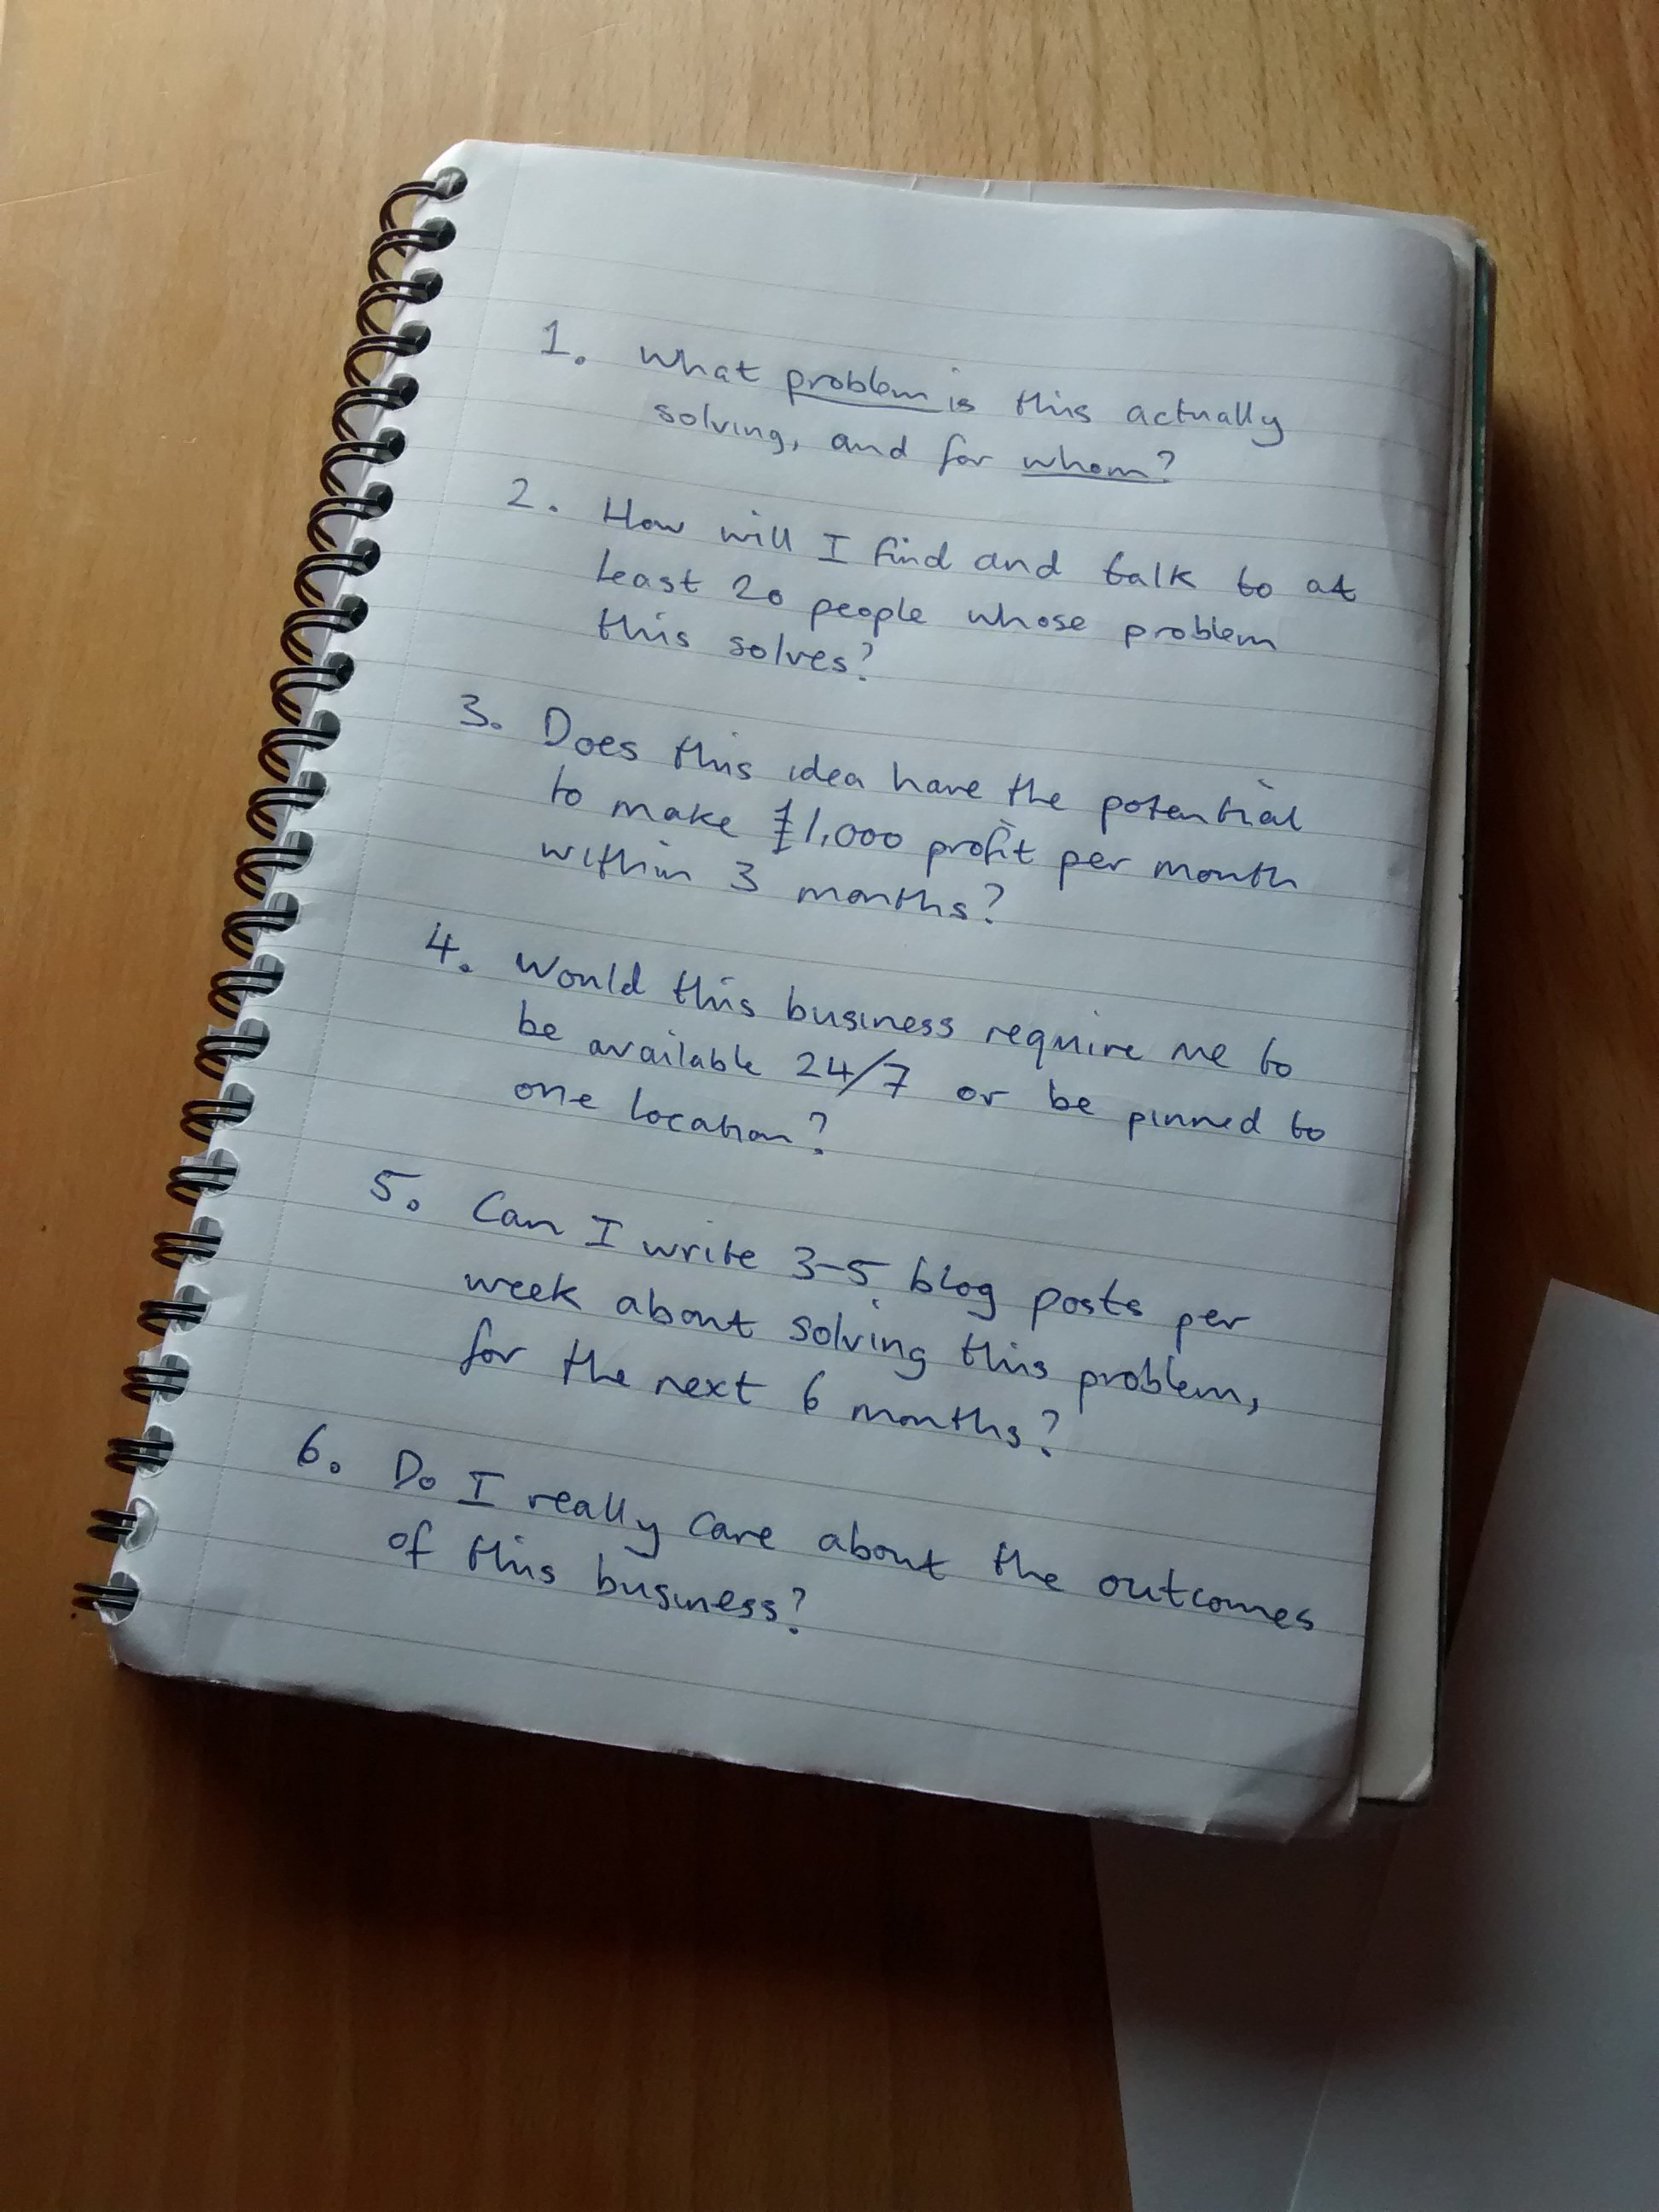 1. What problem is this actually
solving, and for whom?
2. How will I find and talk to at
least 20 people whose problem
this solves?
3. Does this idea have the potential
to make £1,000 profit per month
within 3 months?
4. Would this business require me to
be available 24/7 or be pinned to
one location?
5. Can I write 3-5 blog posts per
week about solving this problem,
for the next 6 months?
6. Do I really care about the outcomes
of this business?